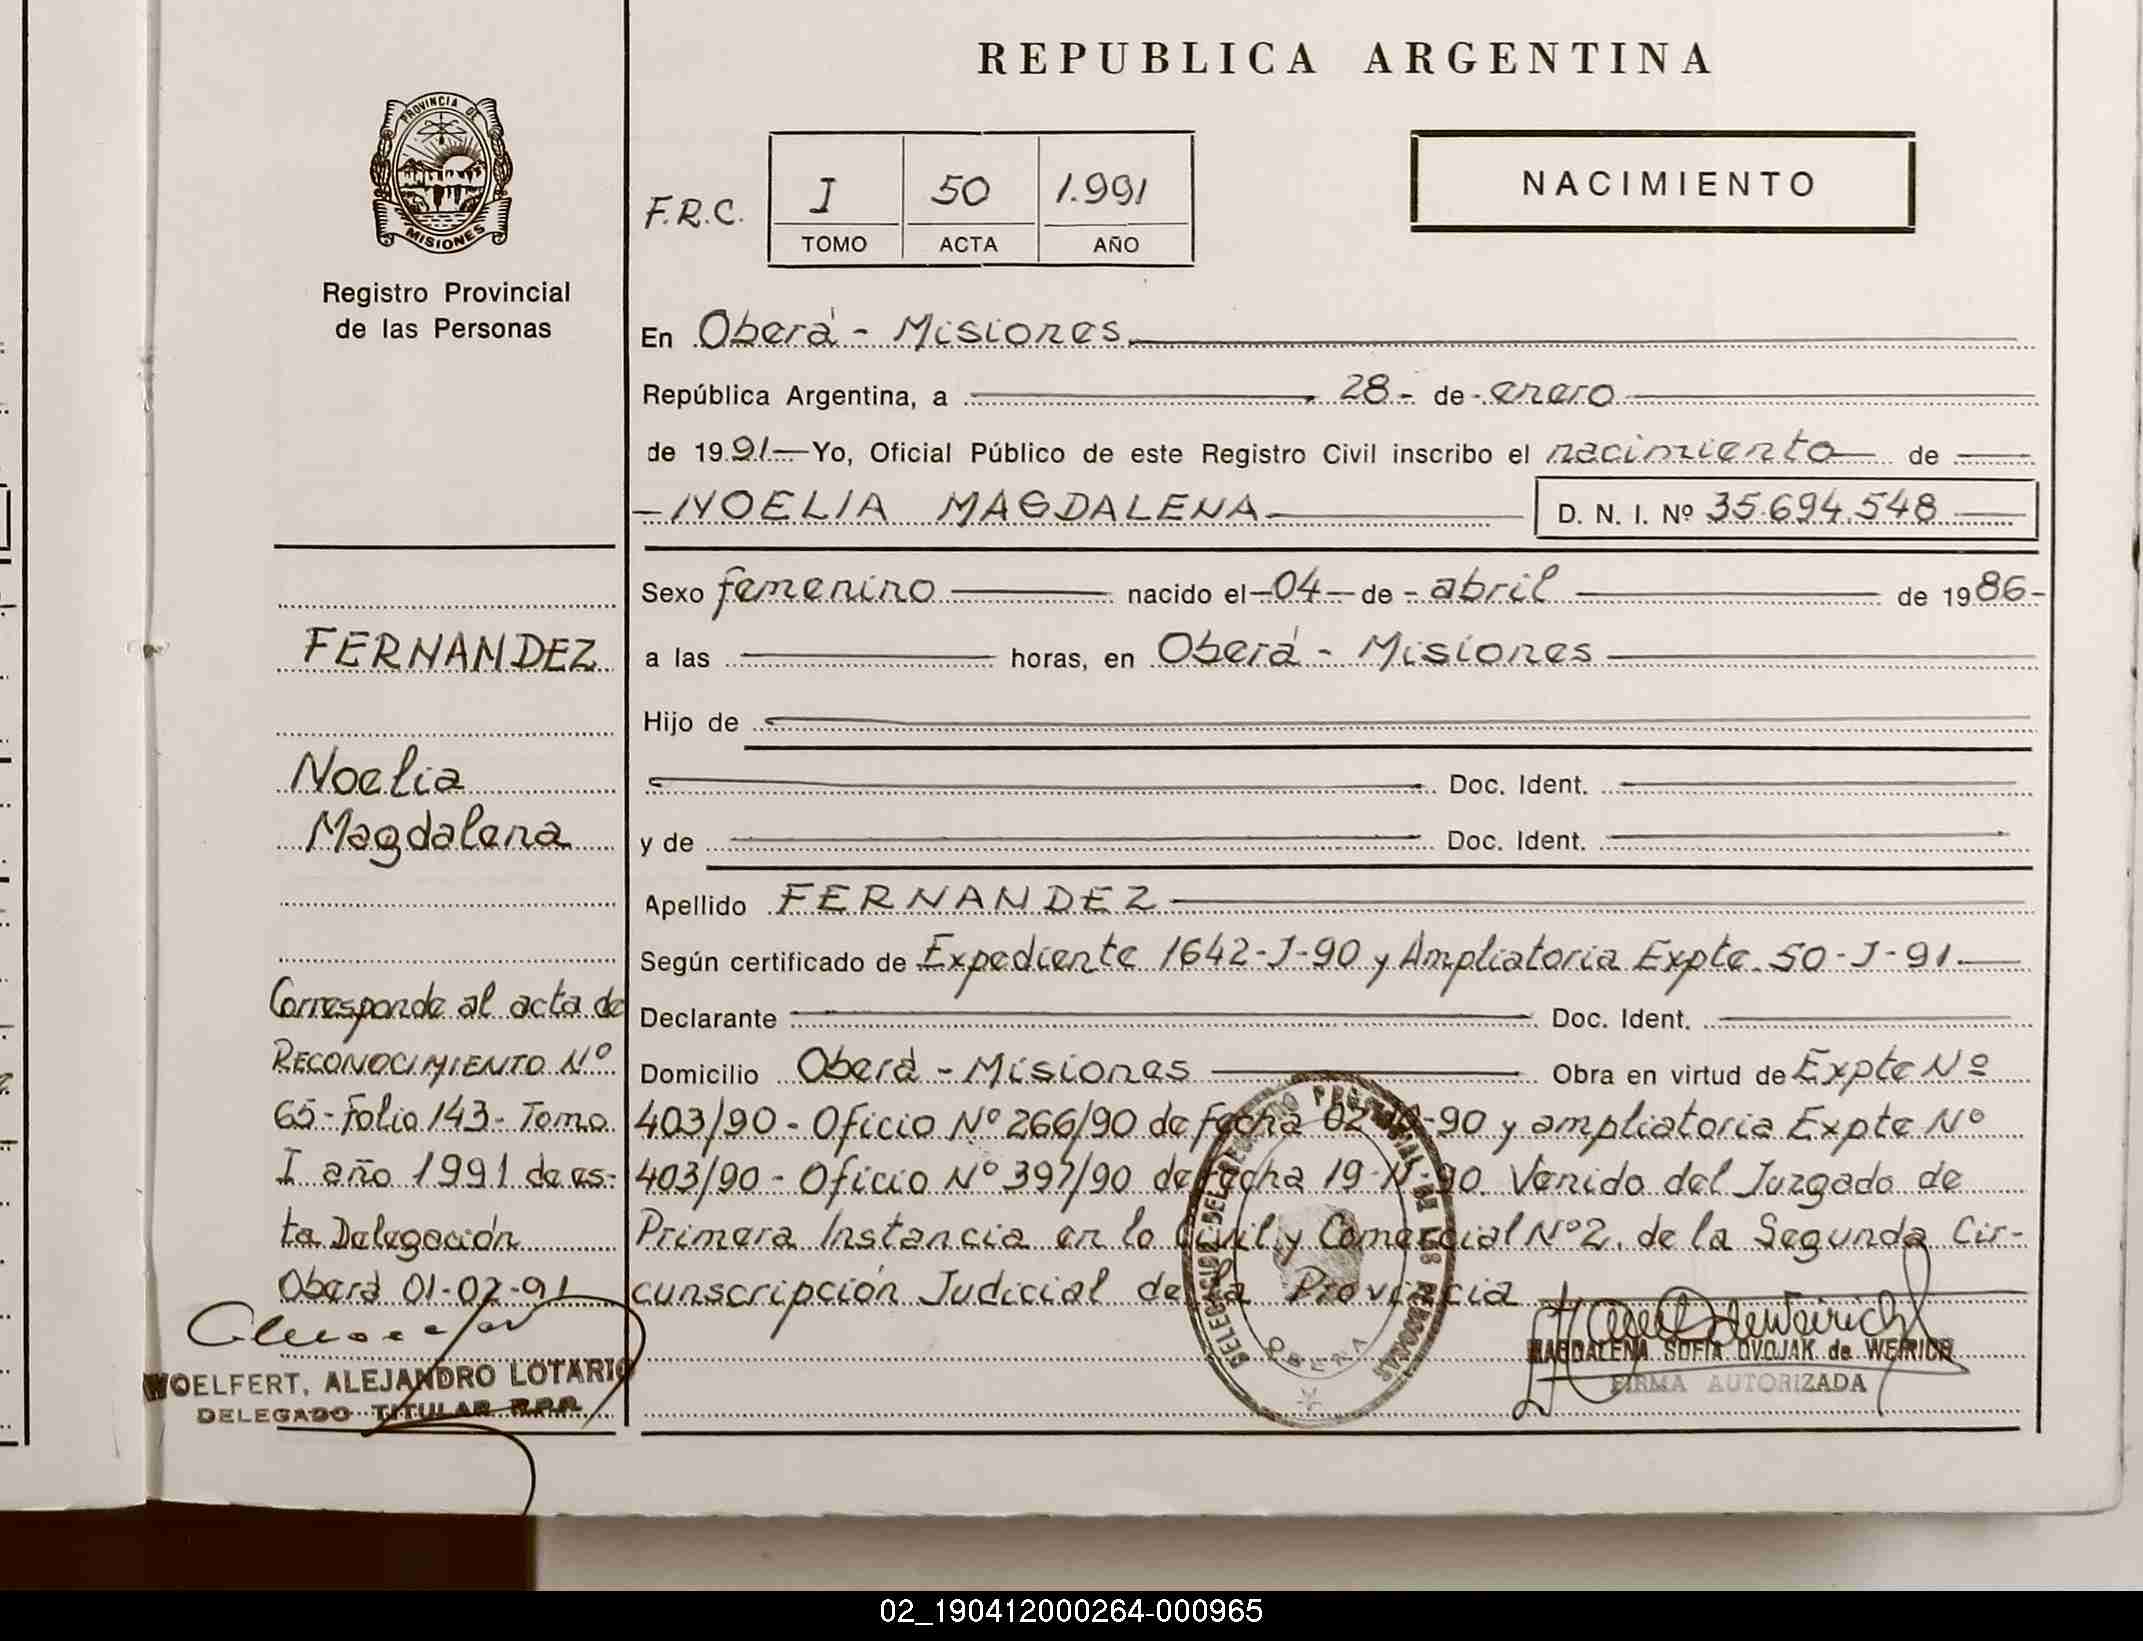 REPUBLICA ARGENTINA
PROVINCIA DE
MISIONES
Registro Provincial
de las Personas
F.R.C.
I 50 1.991
TOMO ACTA AÑO
NACIMIENTO
En Oberá - Misiones
República Argentina, a 28- de enero
de 1991 Yo, Oficial Público de este Registro Civil inscribo el nacimiento de
NOELIA MAGDALENA D. N. I. Nº 35.694.548
Sexo femenino nacido el 04 de abril de 1986
a las horas, en Oberá - Misiones
Hijo de
Doc. Ident.
y de Doc. Ident.
Apellido FERNANDEZ
Según certificado de Expediente 1642-J-90 y Ampliatoria Expte. 50-J-91.
Declarante Doc. Ident.
Domicilio Oberá - Misiones Obra en virtud de Expte Nº
403/90 - Oficio Nº 266/90 de fecha 02 -90 y ampliatoria Expte Nº
403/90 - Oficio Nº 397/90 de fecha 19-11-90. Venido del Juzgado de
Primera Instancia en lo Civil y Comercial Nº 2. de la Segunda Cir-
cunscripción Judicial de la Provincia
FERNANDEZ
Noelia
Magdalena
Corresponde al acta de
RECONOCIMIENTO Nº
65 - Folio 143 - Tomo
I año 1991 de es-
ta Delegación
Oberá 01-02-91
WOELFERT, ALEJANDRO LOTARIO
DELEGADO TITULAR R.P.P.
DELEGACION DEL REGISTRO PROVINCIAL DE LAS PERSONAS
OBERA
MAGDALENA SOFIA OVOJAK de WEIRICH
FIRMA AUTORIZADA
02_190412000264-000965